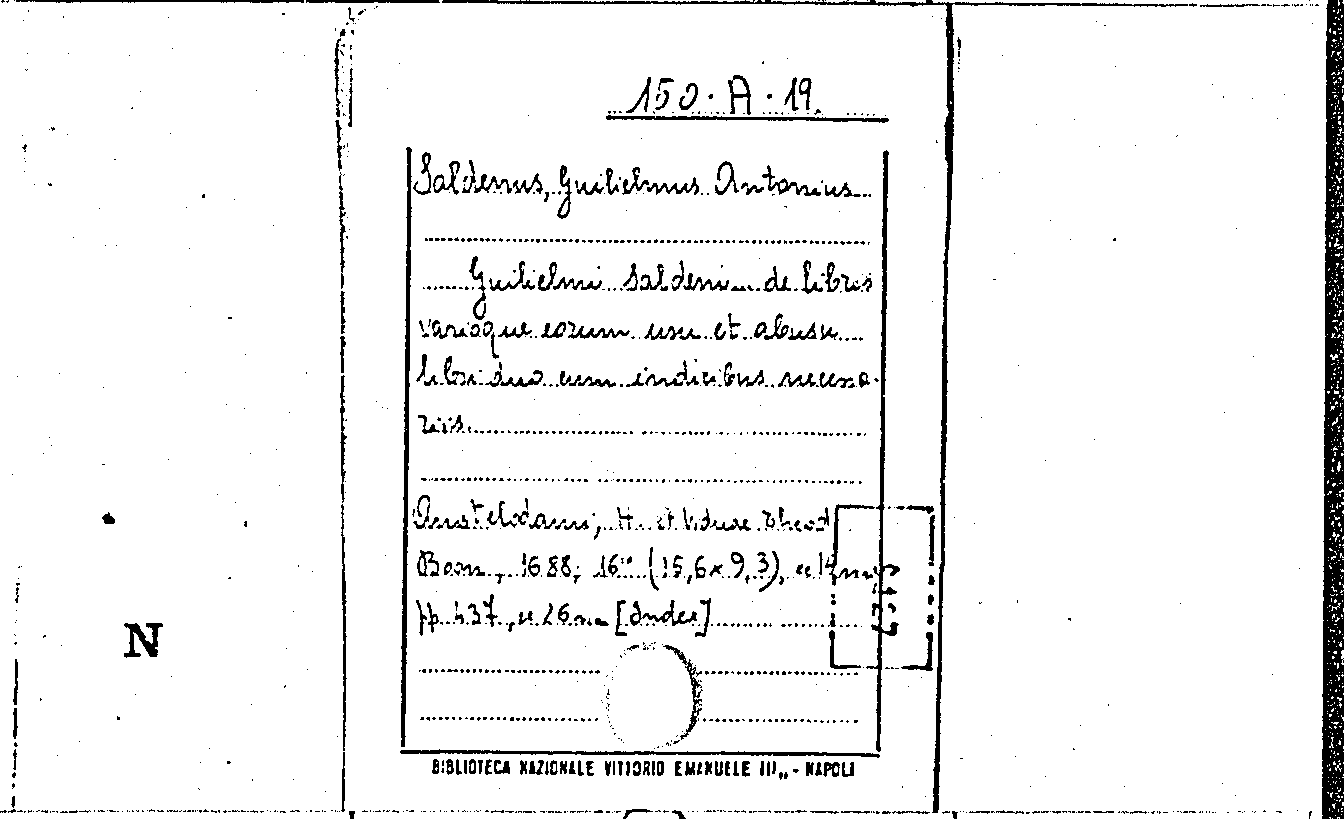 150 · A · 19.
Saldenus, Guilielmus Antonius
Guilielmi Saldeni de libris
varioque eorum usu et abusu
libri duo cum indicibus necessa-
riis.
Amstelodami, H. et Viduae Theod
Boom, 1688; 16° (15,6 x 9,3), cc 14
pp. 437, cc 26 nn [Index]
N
BIBLIOTECA NAZIONALE VITTORIO EMANUELE III,, - NAPOLI